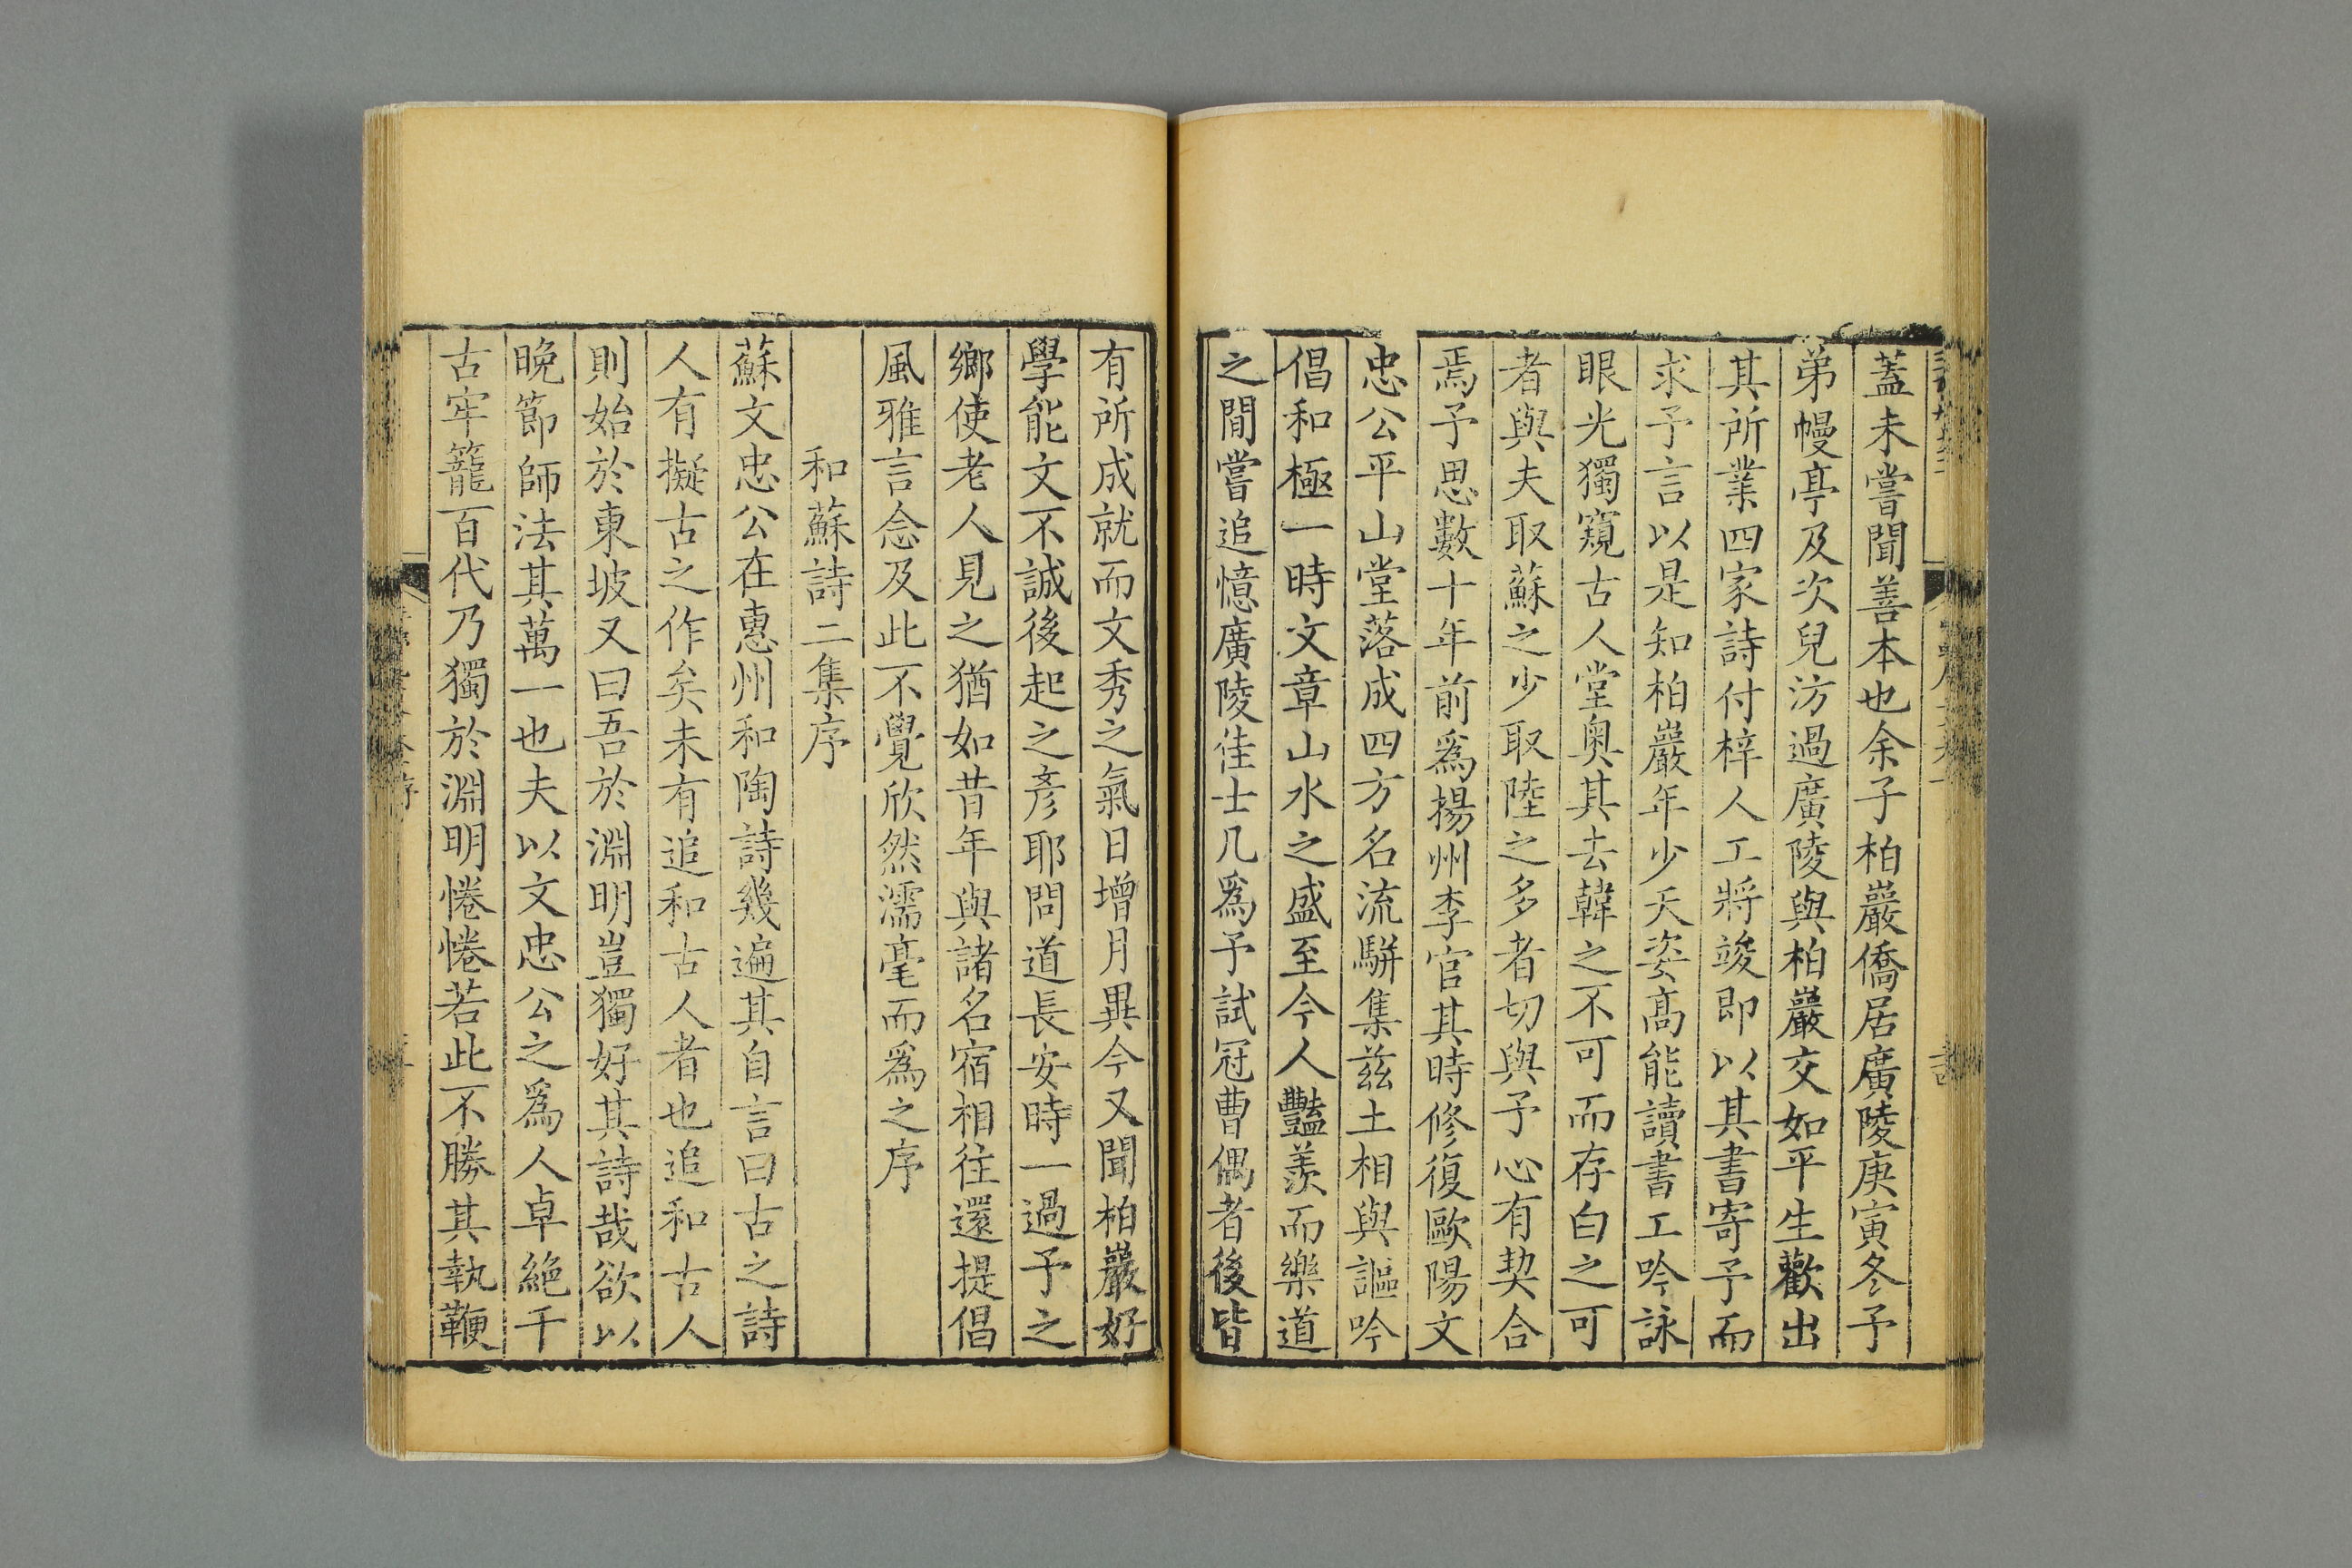 蓋未嘗聞善本也余子柏巖僑居廣陵庚寅冬予
弟幔亭及次兒汸過廣陵與柏巖交如平生歡出
其所業四家詩付梓人工將竣即以其書寄予而
求予言以是知柏巖年少天姿高能讀書工吟詠
眼光獨窺古人堂奧其去韓之不可而存白之可
者與夫取蘇之少取陸之多者切與予心有契合
焉予思數十年前爲揚州李官其時修復歐陽文
忠公平山堂落成四方名流駢集茲土相與謳吟
倡和極一時文章山水之盛至今人豔羨而樂道
之間嘗追憶廣陵佳士几爲予試冠曹偶者後皆
有所成就而文秀之氣日增月異今又聞柏巖好
學能文不誠後起之彥耶問道長安時一過予之
鄉使老人見之猶如昔年與諸名宿相往還提倡
風雅言念及此不覺欣然濡毫而爲之序
和蘇詩二集序
蘇文忠公在惠州和陶詩幾遍其自言曰古之詩
人有擬古之作矣未有追和古人者也追和古人
則始於東坡又曰吾於淵明豈獨好其詩哉欲以
晚節師法其萬一也夫以文忠公之爲人卓絕千
古牢籠百代乃獨於淵明惓惓若此不勝其執鞭